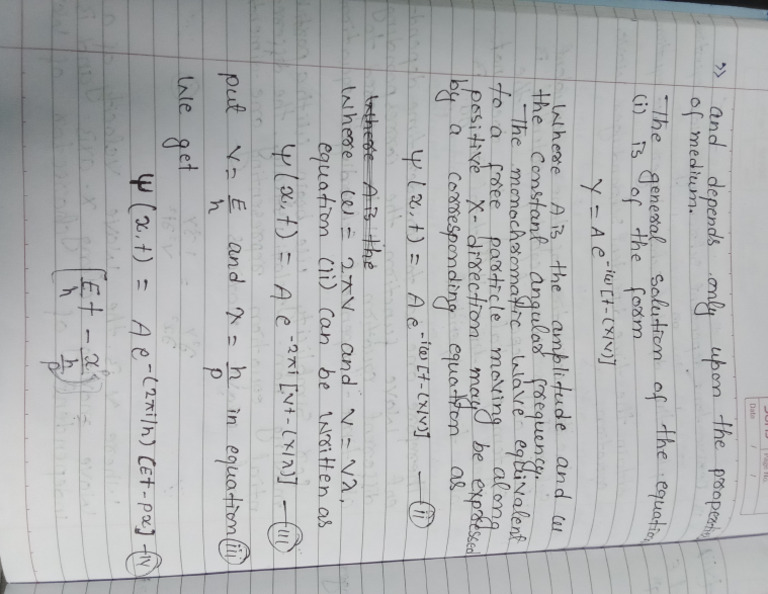 and depends only upon the
of medium.
The general solution of the equation
(i) is of the form
Y = A e^-iω[t-(x/v)]
Where A is the amplitude and ω
the constant angular frequency.
The monochromatic wave equivalent
to a free particle moving along
positive x-direction may be expressed
by a corresponding equation as
ψ(x,t) = A e^-iω[t-(x/v)] — (ii)
Where A is the
Where ω = 2πν and v = νλ,
equation (ii) can be written as
ψ(x,t) = A e^-2πi[νt-(x/λ)] — (iii)
put ν = E/h and λ = h/p in equation (iii)
We get
ψ(x,t) = A e^-(2πi/h) (Et-px] — (iv)
[Et/h - x/(h/p)]